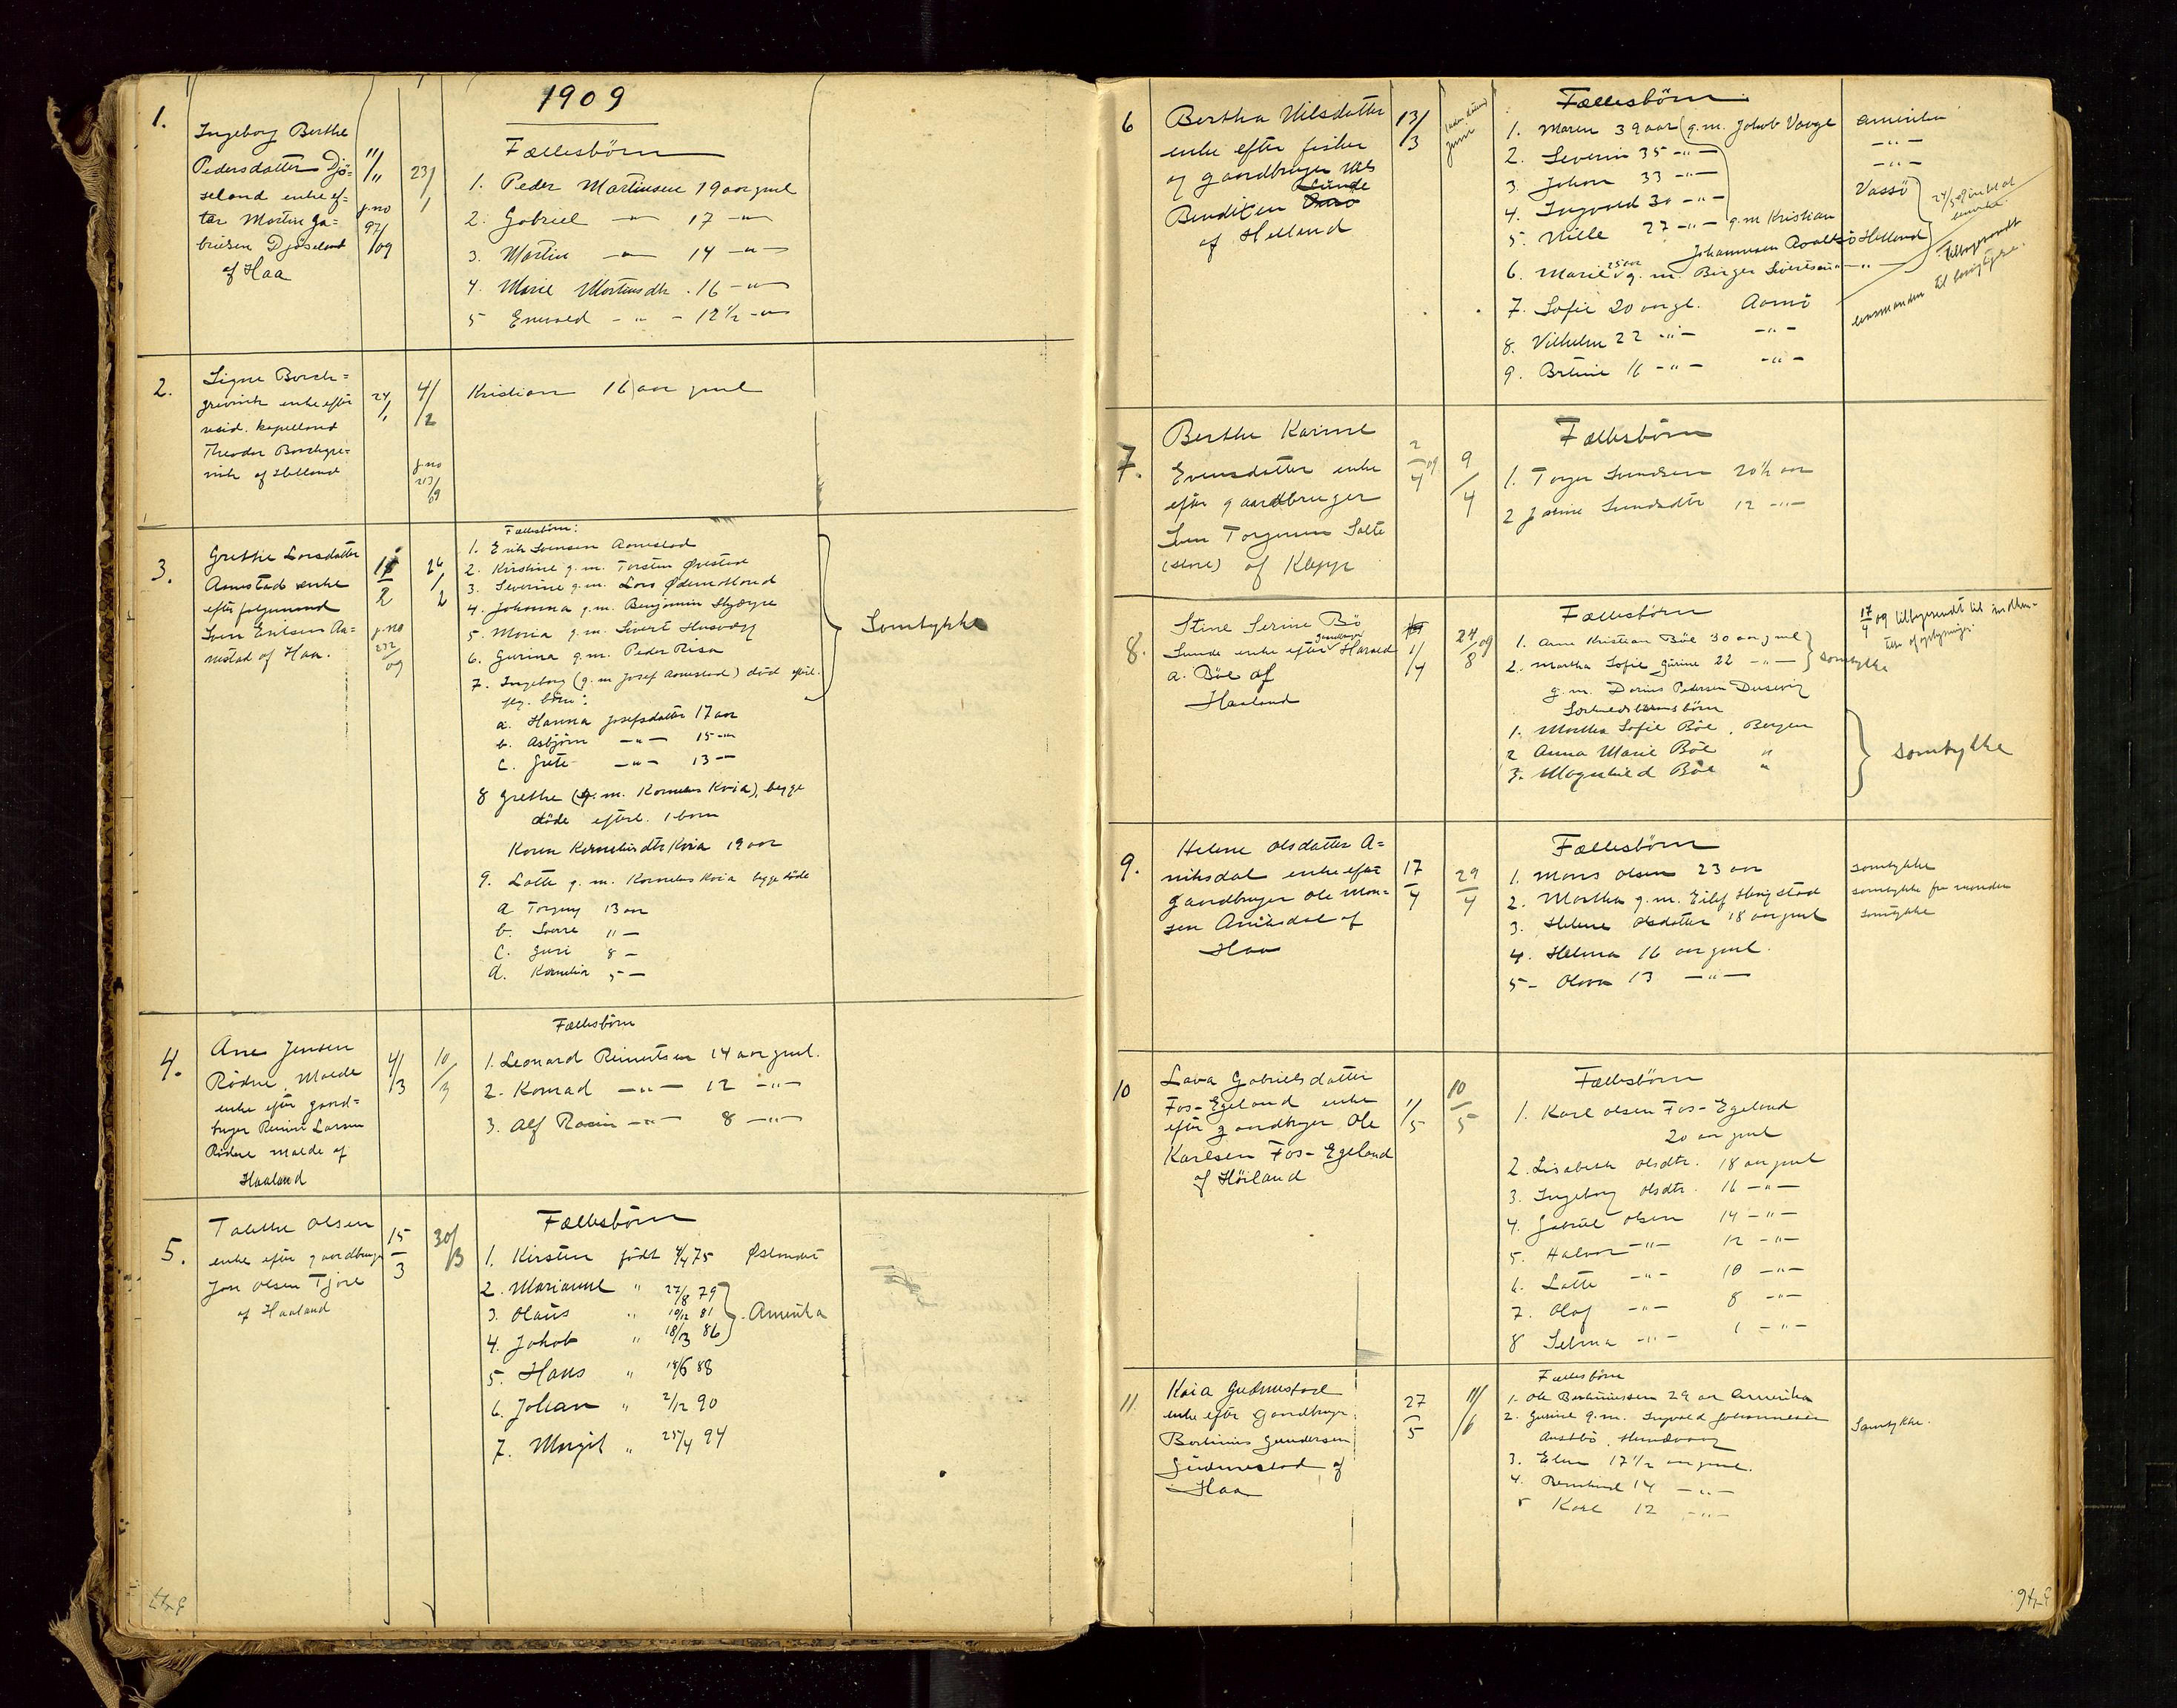 1909
1.
Ingeborg Berthe
Pedersdatter Djö=
seland enke ef=
ter Martin Ga=
brielsen Djöseland
af Haa
11/11
j.no
97/09
23/1
Fællesbörn
1. Peder Martinsen 19 aar gml
2. Gabriel —"— 17 —"—
3. Martin —"— 14 —"—
4. Marie Martinsdtr. 16 —"—
5 Enevald - " - 12½ —"—
2.
Signe Borch=
grevink enke efter
resid. kapelland
Theodor Borchgre=
vink af Hetland
24/1
4/2
j.no
213/09
Kristian 16 aar gml
3.
Grethe Larsdatter
Aanestad enke
efter
Sven Eriksen Aa=
nestad af Haa.
2
j.no
232/09
26/2
Fællesbörn:
1. Erik Svensen Aanestad
2. Kirstine g.m. Torsten
3. Severine g.m. Lars Ødemotland
4. Johanna g.m. Benjamin
5. Maria g.m. Sivert
6. Gurina g.m. Peder Risa
7. Ingeborg (g.m. Josef Aanestad) död efterl.
flg. börn:
a. Hanna Josefsdatter 17 aar
b. Asbjörn —"— 15 —"—
c. Grete —"— 13 —"—
8 Grethe (g.m. Kornelius Kvia), begge
döde efterl. 1 barn
Karen Korneliusdtr Kvia 19 aar
9. Lotte g.m. Kornelius Kvia begge döde
a Torger 13 aar
b. Sverre 11 —
c. Guri 8 —
d. Kornelia 5 —
Samtykke
4.
Ane Jensen
Rödne, Malde
enke efter gaard=
bruger Reinert Larsen
Rödne Malde af
Haaland
4/3
10/3
Fællesbörn
1. Leonard Reinertsen 14 aar gml.
2. Konrad —"— 12 —"—
3. Alf Rasin —"— 8 —"—
5.
Talette Olsen
enke efter gaardbruger
Jon Olsen Tjore
af Haaland
15/3
30/3
Fællesbörn
1. Kirsten födt 4/4 75
2. Marianne " 27/8 79
3. Olaus " 19/12 81
4. Jakob " 18/3 86
Amerika
5. Hans " 18/6 88
6. Johan " 2/12 90
7. Margit " 25/4 94
6
Bertha Nilsdatter
enke efter fisker
og gaardbruger Nils
Bendiksen
af Hetland
13/3
juni
Fællesbörn
1. Maren 39 aar (g.m. Jakob Vaage Amerika
2. Severin 35 —"— —"—
3. Johan 33 —"— —"—
4. Ingvald 30 —"— Vassö
5. Nille 27 —"— g.m. Kristian
Johannesen Hetland
6. Marie 25 aar g.m. Birger Sivertsen —"—
7. Sofie 20 aar gl.
8. Vilhelm 22 —"— —"—
9. 16 —"— —"—
tilbagesendt
lensmanden til
7.
Berthe Karine
Evensdatter enke
efter gaardbruger
Sven Torgersen Salte
(store) af Klepp
2/4 09
9/4
Fællesbörn
1. Torger Svendsen 20½ aar
2 Svendsdtr 12 —"—
8.
Stine Serine Bö
Sunde enke efter gaardbruger Harald
A. Böe af
Haaland
1/4
24/8 09
Fællesbörn
1. Arne Kristian Böe 30 aar gml
2. Martha Sofie Gurine 22 —"—
samtykke
g.m. Darius Pedersen Dusevig
Særkuldsbarnsbörn
1. Martha Sofie Böe, Bergen
2 Anna Marie Böe "
3. Magnhild Böe "
samtykke
17/4 09 tilbagesendt til indhen-
telse af oplysninger.
9.
Helene Olsdatter A=
niksdal enke efter
gaardbruger Ole Mon=
sen Aniksdal af
Haa
17/4
29/4
Fællesbörn
1. Mons Olsen 23 aar samtykke
2. Martha g.m. Eilef Haugstad samtykke fra manden
3. Helene Olsdatter 18 aar gml samtykke
4. Helma 16 aar gml.
5- Olava 13 —"—
10
Lava Gabrielsdatter
Fos-Egeland enke
efter gaardbruger Ole
Karlsen Fos-Egeland
af Höiland
1/5
10/5
Fællesbörn
1. Karl Olsen Fos-Egeland
20 aar gml
2. Lisabeth Olsdtr. 18 aar gml
3. Ingeborg Olsdtr. 16 —"—
4. Gabriel Olsen 14 —"—
5. Halvor —"— 12 —"—
6. Lotte —"— 10 —"—
7. Olaf —"— 8 —"—
8 Selma —"— 1 —"—
11
Kaia Gudmestad
enke efter gaardbruger
Bertinius Gundersen
Gudmestad af
Haa
27/5
11/6
Fællesbörn
1. Ole Bertiniussen 29 aar Amerika
2. Gurine g.m. Ingvald Johannesen
Austbö, Hundvaag
Samtykke.
3. Elen 17½ aar gml.
4. Bernhard 14 —"—
5 Karl 12 —"—